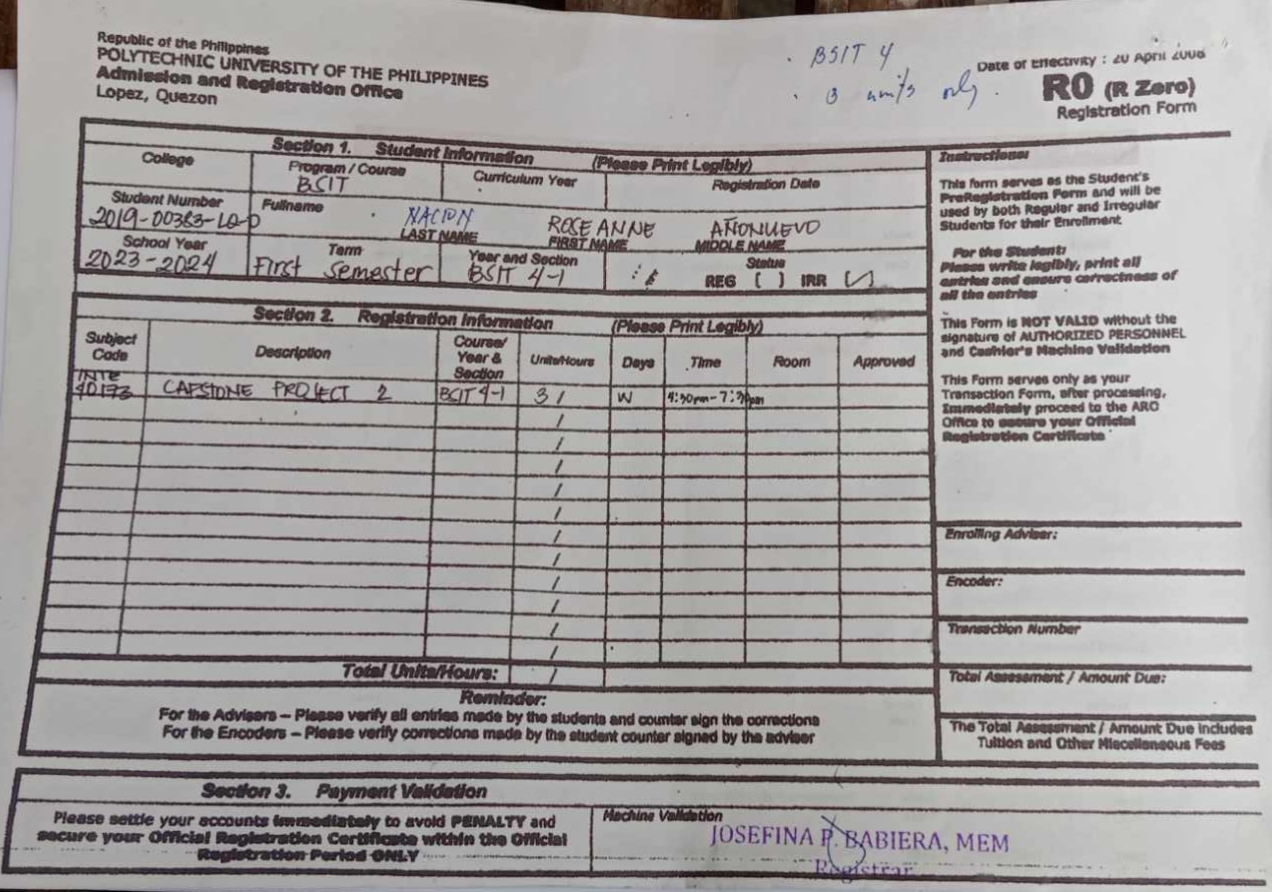 Republic of the Philippines
POLYTECHNIC UNIVERSITY OF THE PHILIPPINES
Admission and Registration Office
Lopez, Quezon
BSIT 4
3 units only.
Date of Effectivity : 20 April 2008
R0 (R Zero)
Registration Form
Section 1. Student Information (Please Print Legibly)
College
Program / Course
BSIT
Curriculum Year
Registration Date
Student Number
2019-00383-LQ-0
Fullname
NACION ROSE ANNE AÑONUEVO
LAST NAME FIRST NAME MIDDLE NAME
School Year
2023-2024
Term
First Semester
Year and Section
BSIT 4-1
Status
REG ( ) IRR (✓)
Section 2. Registration Information (Please Print Legibly)
Subject Code
Description
Course/ Year & Section
Units/Hours
Days
Time
Room
Approved
INTE 40173 CAPSTONE PROJECT 2 BSIT 4-1 3 / W 4:30pm-7:30pm
/
/
/
/
/
/
/
/
/
/
/
Total Units/Hours: /
Reminder:
For the Advisers – Please verify all entries made by the students and counter sign the corrections
For the Encoders – Please verify corrections made by the student counter signed by the adviser
Instructions:
This form serves as the Student's
PreRegistration Form and will be
used by both Regular and Irregular
Students for their Enrollment
For the Student:
Please write legibly, print all
entries and ensure correctness of
all the entries
This Form is NOT VALID without the
signature of AUTHORIZED PERSONNEL
and Cashier's Machine Validation
This Form serves only as your
Transaction Form, after processing,
Immediately proceed to the ARO
Office to secure your Official
Registration Certificate
Enrolling Adviser:
Encoder:
Transaction Number
Total Assessment / Amount Due:
The Total Assessment / Amount Due includes
Tuition and Other Miscellaneous Fees
Section 3. Payment Validation
Please settle your accounts immediately to avoid PENALTY and
secure your Official Registration Certificate within the Official
Registration Period ONLY
Machine Validation
JOSEFINA P. BABIERA, MEM
Registrar